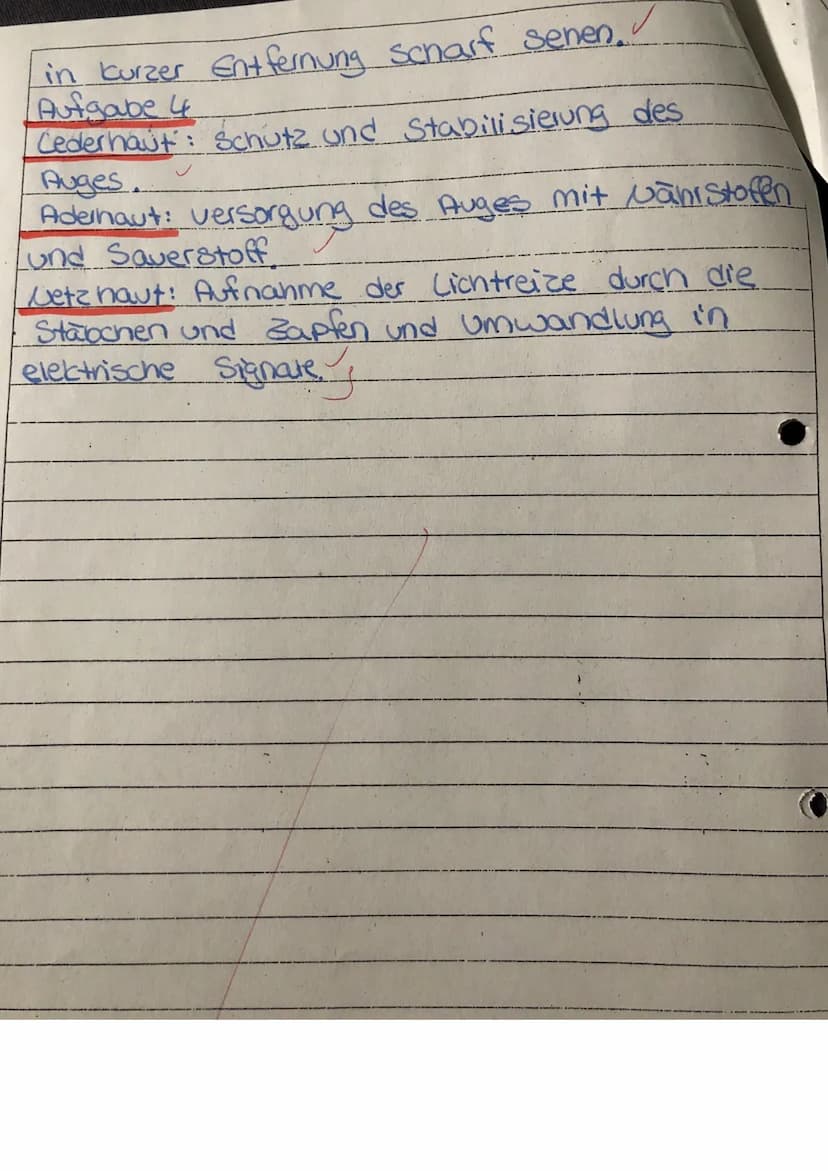 in kurzer Entfernung scharf sehen.
Aufgabe 4
Lederhaut: Schutz und Stabilisierung des
Auges.
Aderhaut: Versorgung des Auges mit Nährstoffen
und Sauerstoff.
Netzhaut: Aufnahme der Lichtreize durch die
Stäbchen und Zapfen und Umwandlung in
elektrische Signale.